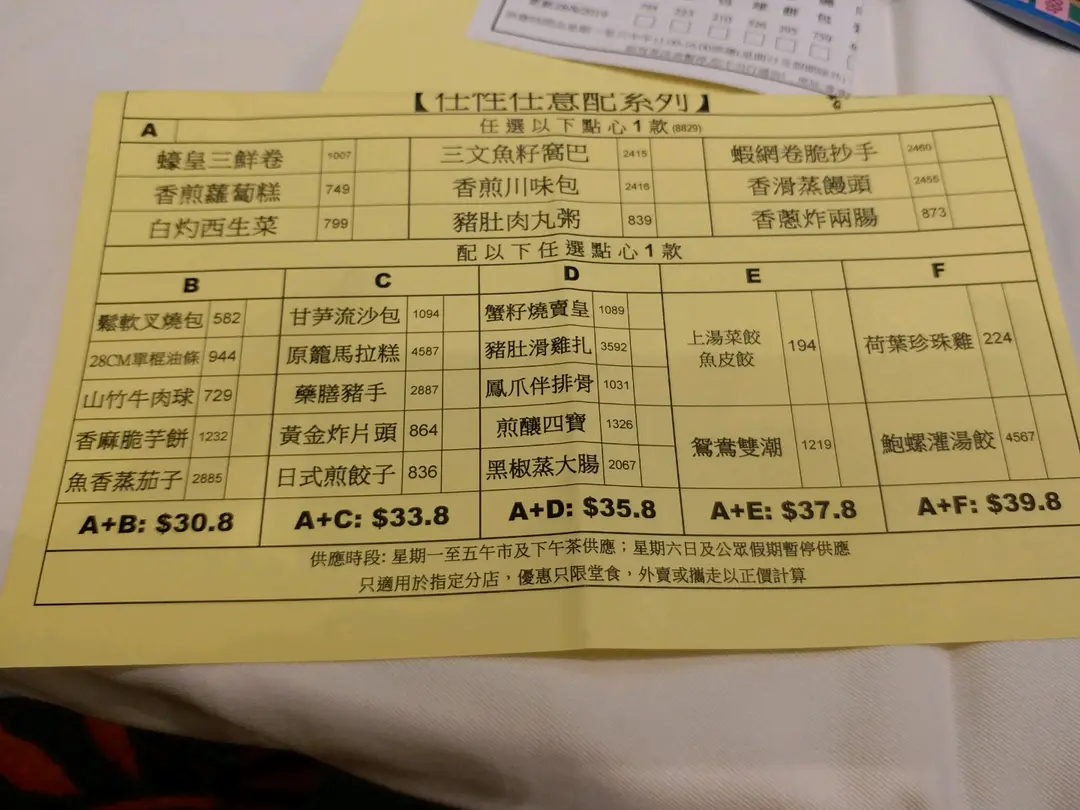 更新28/8/2019
794 223 210 396 395 759
【任性任意配系列】
A 任選以下點心1款(8829)
蠔皇三鮮卷 1007 三文魚籽窩巴 2415 蝦網卷脆抄手 2460
香煎蘿蔔糕 749 香煎川味包 2416 香滑蒸饅頭 2455
白灼西生菜 799 豬肚肉丸粥 839 香蔥炸兩腸 873
配以下任選點心1款
B C D E F
鬆軟叉燒包 582 甘笋流沙包 1094 蟹籽燒賣皇 1089
28CM單棍油條 944 原籠馬拉糕 4587 豬肚滑雞扎 3592 上湯菜餃 魚皮餃 194 荷葉珍珠雞 224
山竹牛肉球 729 藥膳豬手 2887 鳳爪伴排骨 1031
香麻脆芋餅 1232 黃金炸片頭 864 煎釀四寶 1326 鴛鴦雙潮 1219 鮑螺灌湯餃 4567
魚香蒸茄子 2885 日式煎餃子 836 黑椒蒸大腸 2067
A+B: $30.8 A+C: $33.8 A+D: $35.8 A+E: $37.8 A+F: $39.8
供應時段: 星期一至五午市及下午茶供應；星期六日及公眾假期暫停供應
只適用於指定分店，優惠只限堂食，外賣或攜走以正價計算